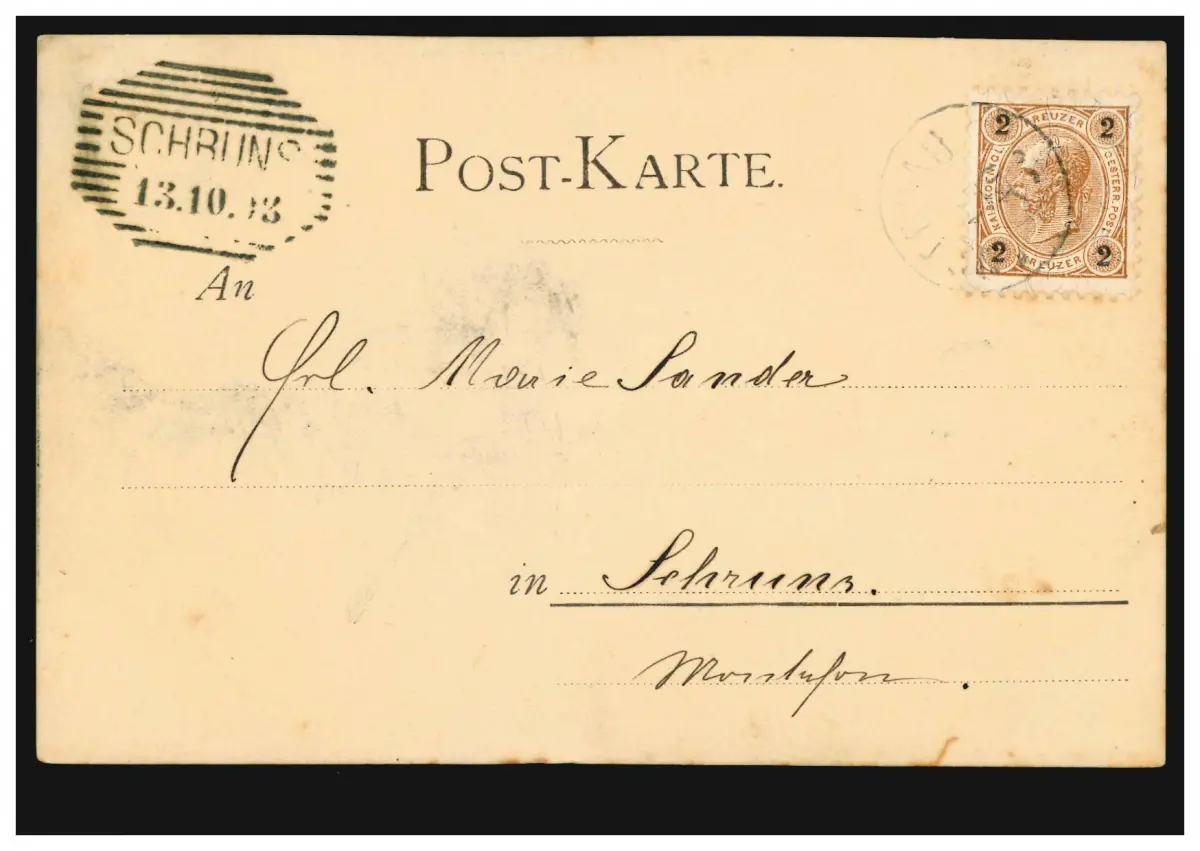 SCHRUNS
13.10.98
POST-KARTE.
2 KREUZER 2
KAIS. KOENIGL. OESTERR. POST
2 KREUZER 2
An
Frl. Marie Sander
in Schruns.
Montafon.